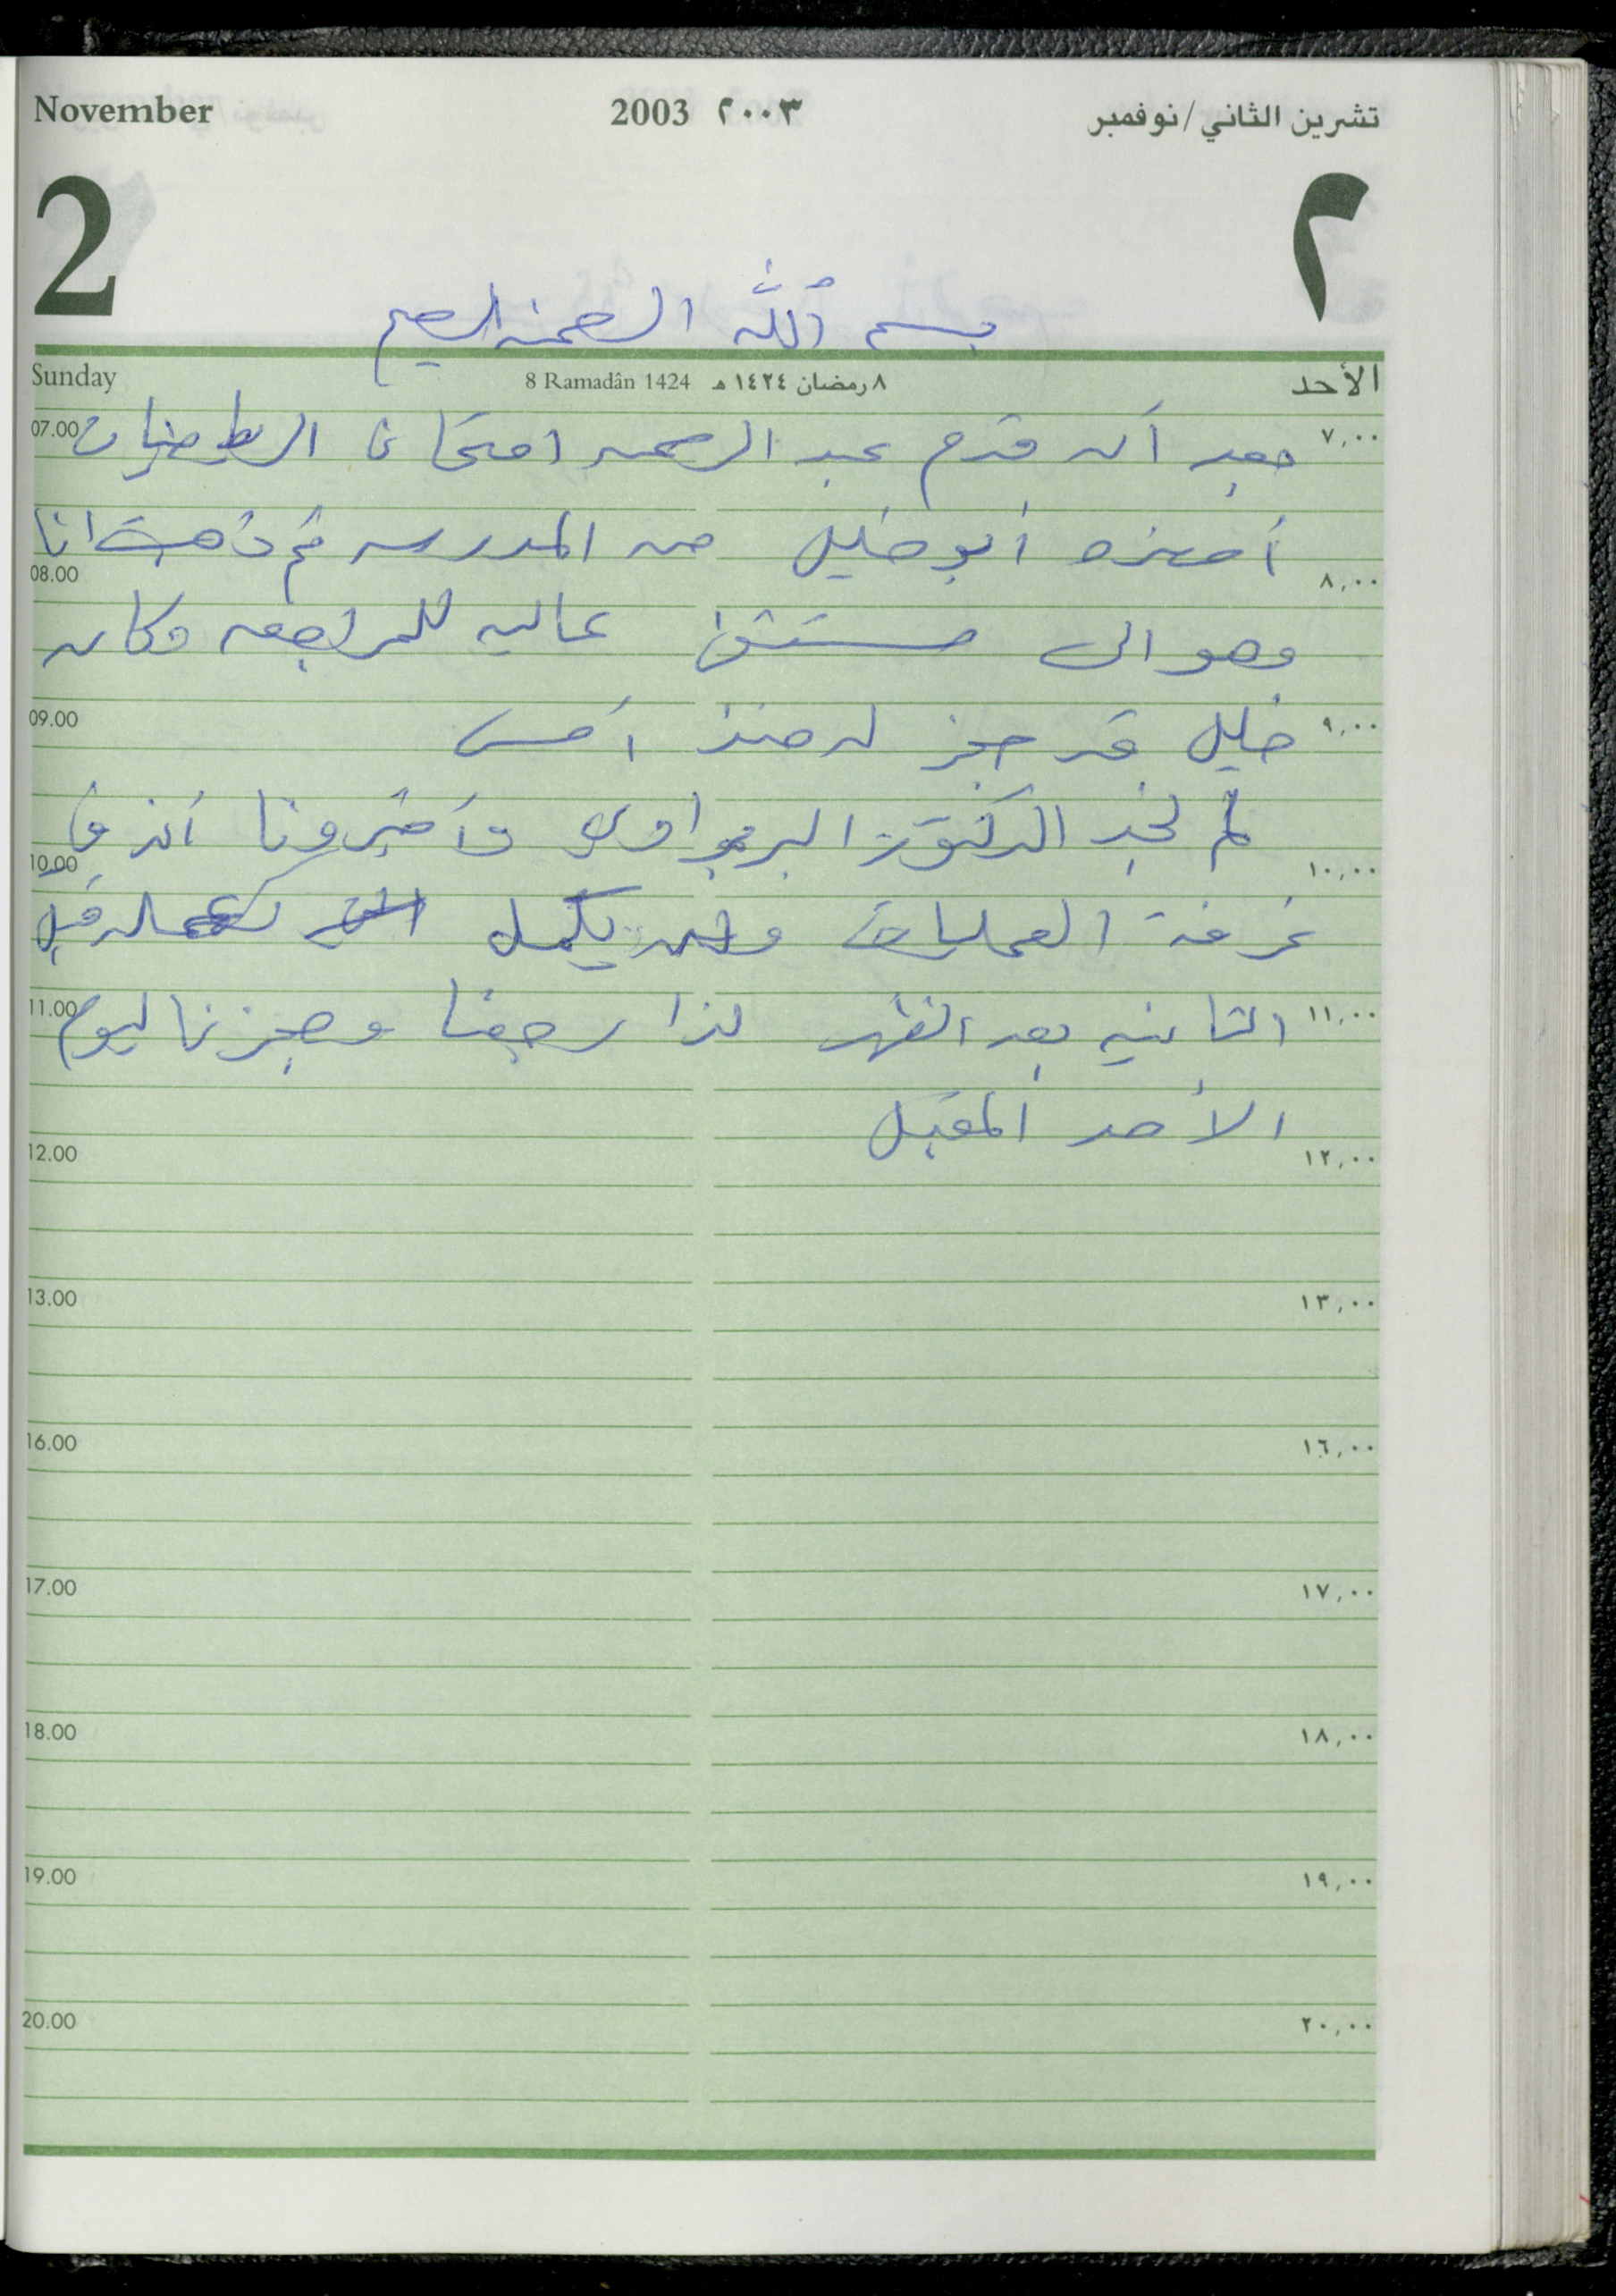 November 2003 ٢٠٠٣ تشرين الثاني/نوفمبر
2 ٢
بسم الله الرحمن الرحيم
Sunday 8 Ramadân 1424 ٨ رمضان ١٤٢٤ هـ الأحد
07.00 بعد أن قدم عبد الرحمن امتحان الرياضيات ٧,٠٠
أحضره أبو خليل من المدرسه ثم ذهبت انا
08.00 ٨,٠٠
وهو الى مستشفى عاليه للمراجعه وكان
09.00 خليل قد حجز له منذ أمس ٩,٠٠
لم نجد الدكتور وأخبرونا أنه في
10.00 ١٠,٠٠
غرفة العمليات ولن يكمل قبل
11.00 الثانيه بعد الظهر لذا رجعنا وحجزنا ليوم ١١,٠٠
الأحد المقبل
12.00 ١٢,٠٠
13.00 ١٣,٠٠
16.00 ١٦,٠٠
17.00 ١٧,٠٠
18.00 ١٨,٠٠
19.00 ١٩,٠٠
20.00 ٢٠,٠٠